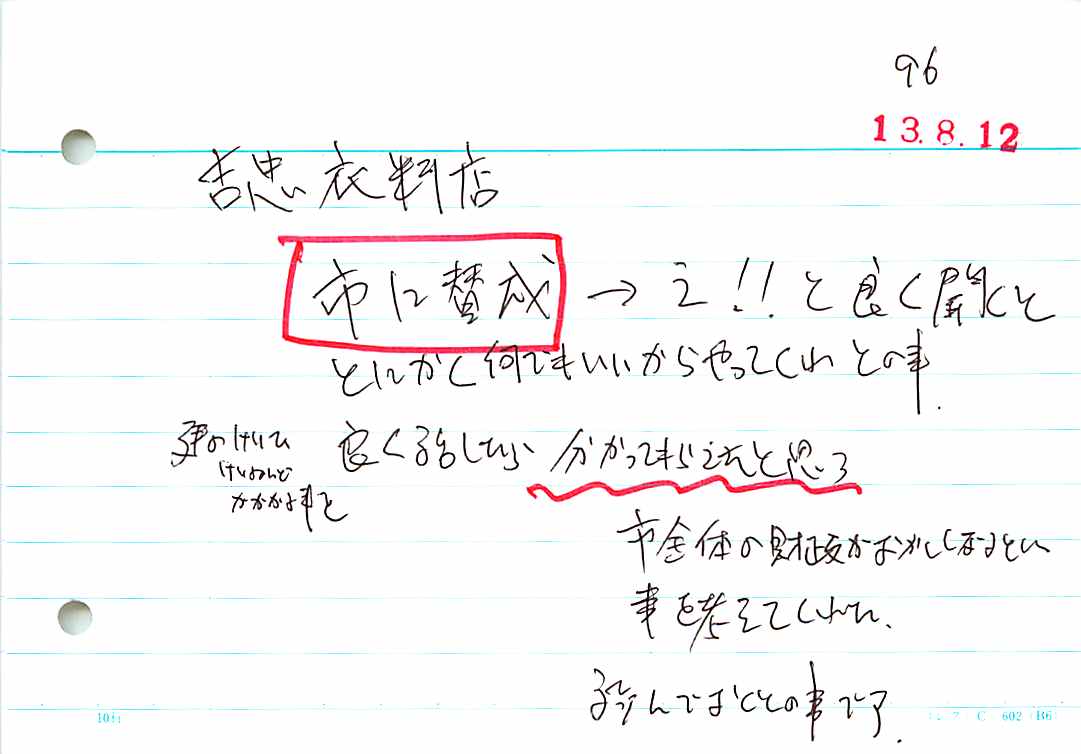 96
13.8.12
吉忠い衣料店
市に賛成 → え!!と良く聞くと
とにかく何でもいいからやってくれ との事.
良く話したら 分かってもらえたと思う
市全体の財政がおかしくなるとい
事を考えてくれた、
読んでおくとの事です.
C 602 (B6)